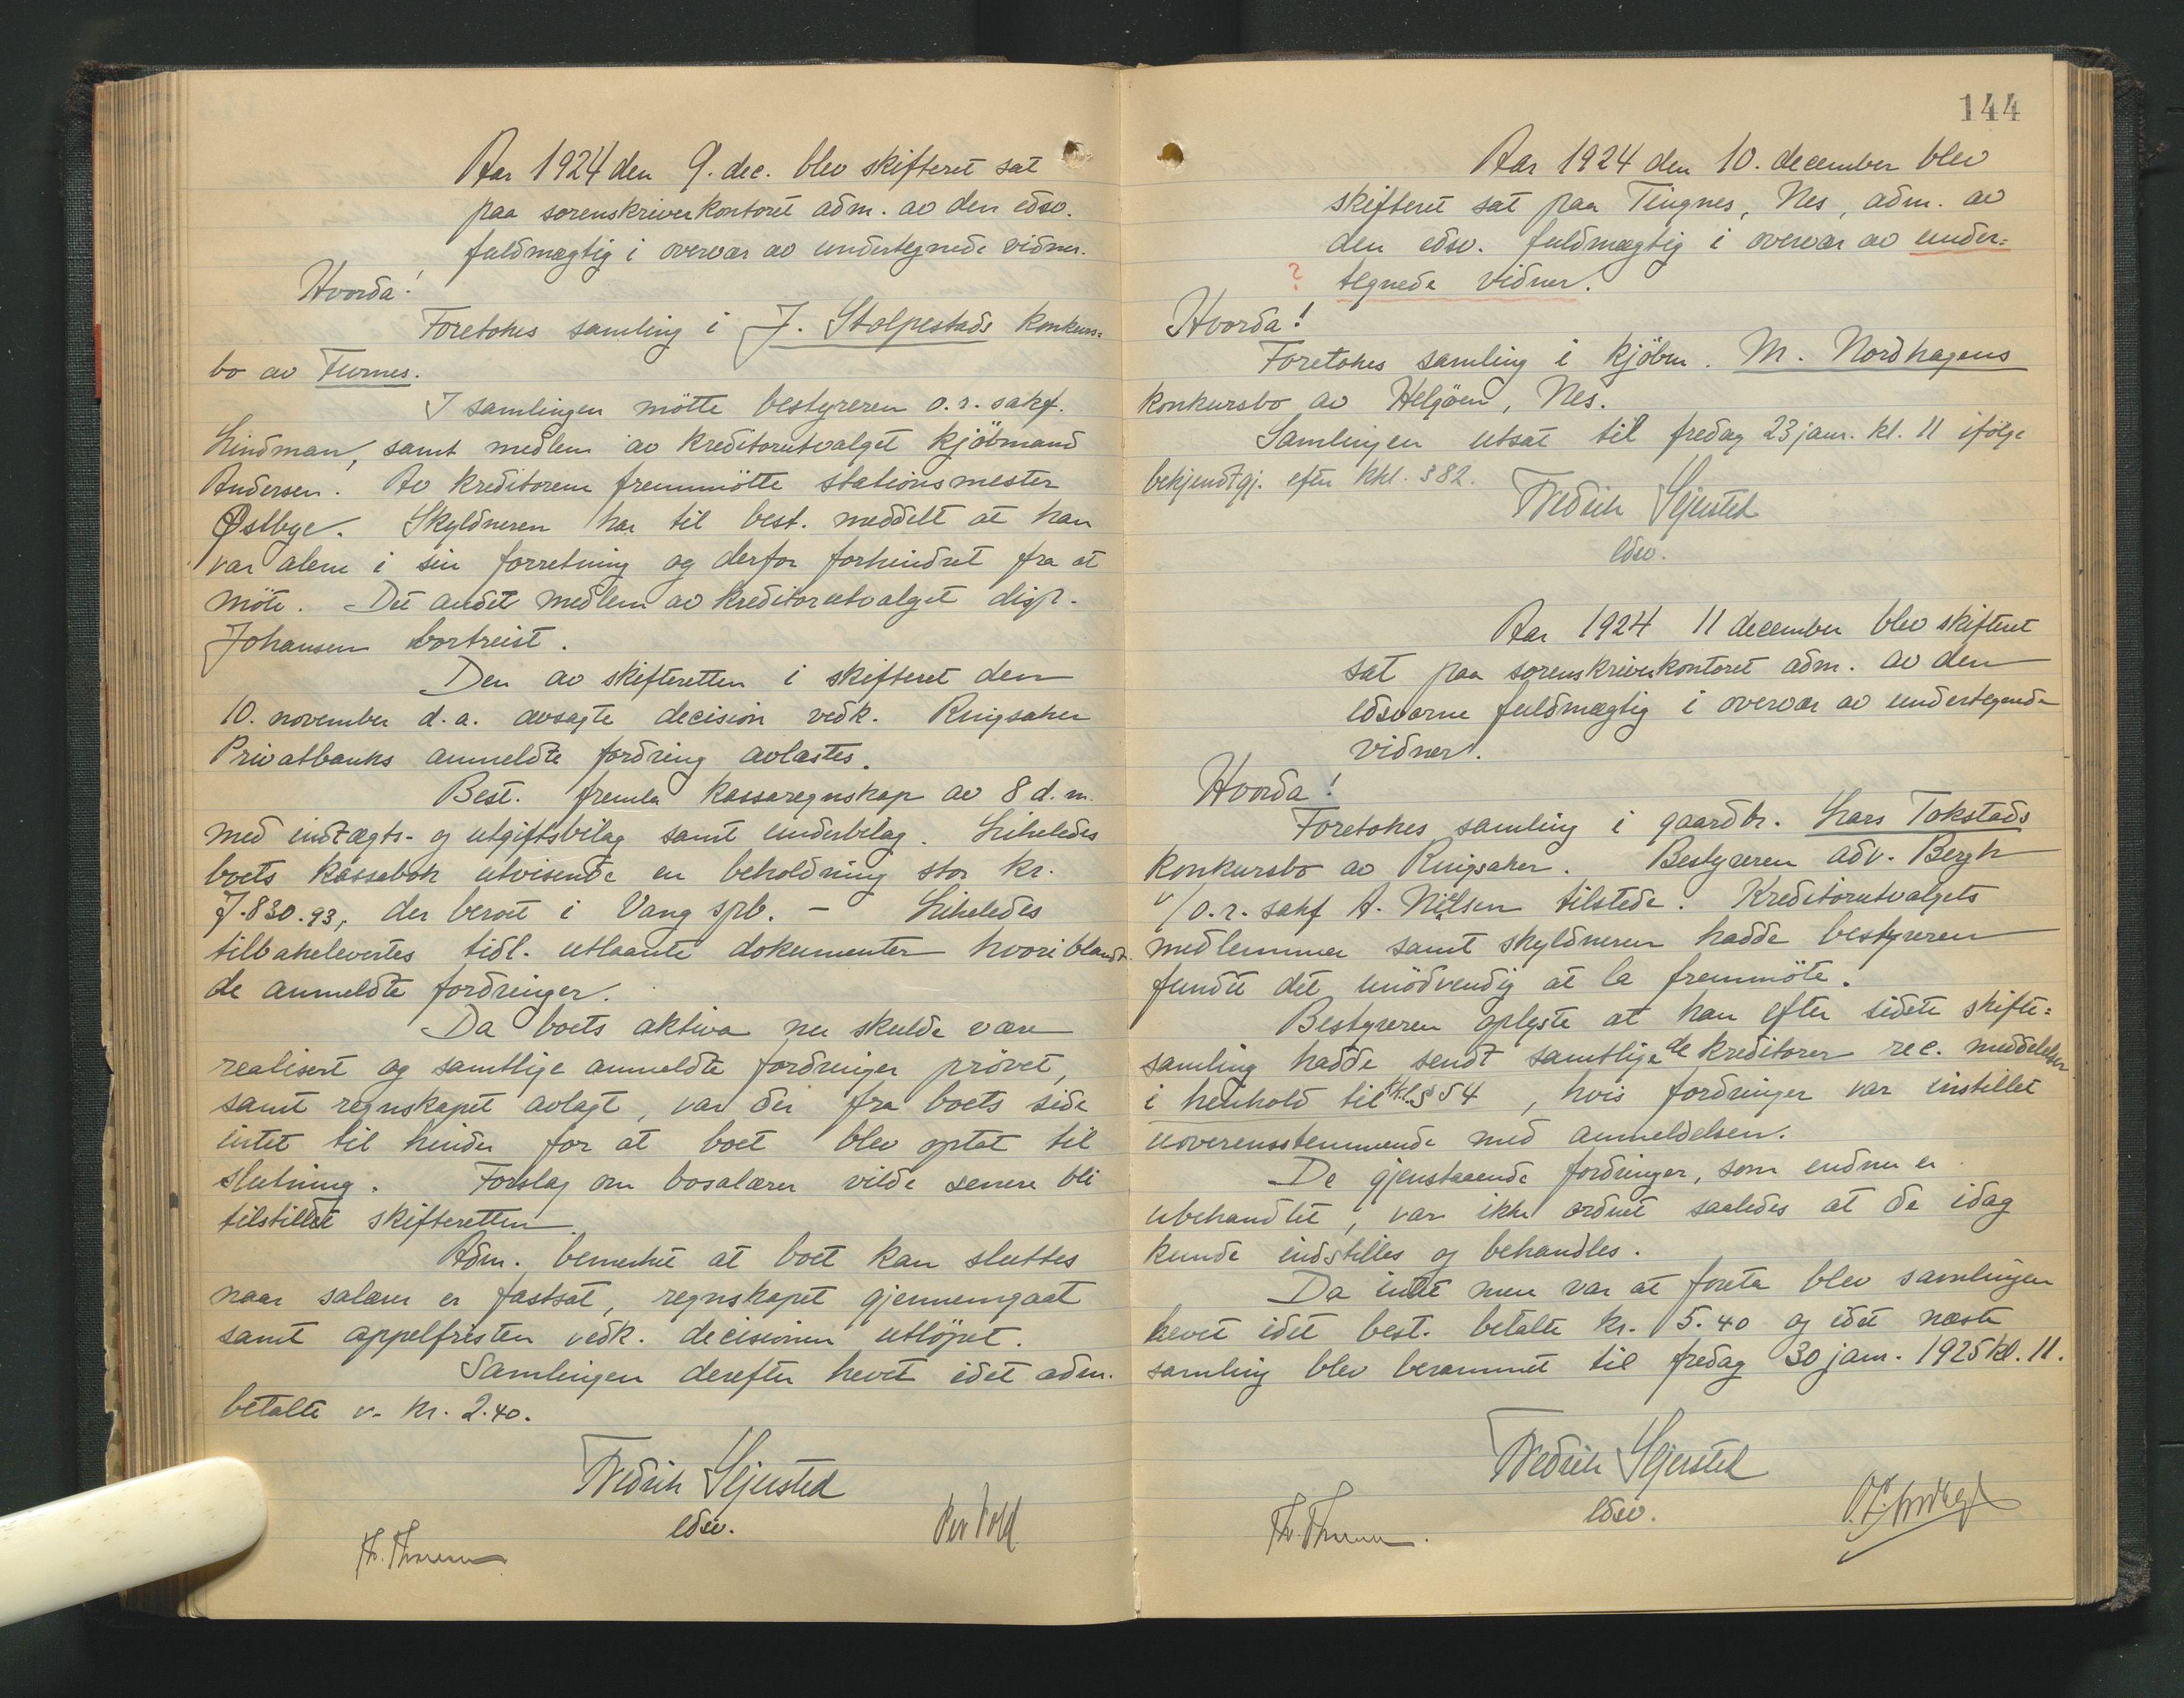 Aar 1924 den 9. dec. blev skifteret sat
paa sorenskriverkontoret adm. av den edsv.
fuldmægtig i overvær av undertegnede vidner.
Hvorda!
Foretokes samling i J. Stolpestads konkurs-
bo av Furnes.
I samlingen mötte bestyreren o.r. sakf.
Lindman, samt medlem av kreditorutvalget kjöbmand
Andersen. Av kreditorene fremmötte stationsmester
Østbye. Skyldneren har til best. meddelt at han
var alene i sin forretning og derfor forhindret fra at
möte. Det andet medlem av kreditorutvalget disp.
Johansen bortreist.
Den av skifteretten i skifteret den
10. november d.a. avsagte decision vedk. Ringsaker
Privatbanks anmeldte fordring avlæstes.
Best. fremla kassaregnskap av 8 d.m.
med indtægts- og utgiftsbilag samt underbilag. Likeledes
boets kassabok utvisende en beholdning stor kr.
7.830.93, der beroet i Vang spb. - Likeledes
tilbakelevertes tidl. utlaante dokumenter hvoriblandt
de anmeldte fordringer.
Da boets aktiva nu skulde være
realisert og samtlige anmeldte fordringer prövet,
samt regnskapet avlagt, var der fra boets side
intet til hinder for at boet blev optat til
slutning. Forslag om bosalærer vilde senere bli
tilstillet skifteretten.
Adm. bemerket at boet kan sluttes
naar salærer er fastsat, regnskapet gjennemgaat
samt appelfristen vedk. decisionen utlöpet.
Samlingen derefter hevet idet adm.
betalte v. kr. 2.40.
Fredrik Gjersted
edsv.
Per Vold
Th. Thoresen
144
Aar 1924 den 10. december blev
skifteret sat paa Tingnes, Nes, adm. av
den edsv. fuldmægtig i overvær av under-
? tegnede vidner.
Hvorda!
Foretokes samling i kjöbm. M. Nordhagens
konkursbo av Helgöen, Nes.
Samlingen utsat til fredag 23 jan. kl. 11 ifölge
bekjendtgj. efter kkl. § 82.
Fredrik Gjersted
edsv.
Aar 1924 11 december blev skifteret
sat paa sorenskriverkontoret adm. av den
edsvorne fuldmægtig i overvær av undertegnede
vidner.
Hvorda!
Foretokes samling i gaardbr. Lars Tokstads
konkursbo av Ringsaker. Bestyreren adv. Bergh
v/o.r. sakf A. Nilsen tilstede. Kreditorutvalgets
medlemmer samt skyldneren hadde bestyreren
fundet det unödvendig at la fremmöte.
Bestyreren oplyste at han efter sidste skifte-
samling hadde sendt samtlige de kreditorer rec. meddelelser
i henhold til kkl. § 54, hvis fordringer var instillet
uoverensstemmende med anmeldelsen.
De gjenstaaende fordringer, som endnu er
ubehandlet, var ikke ordnet saaledes at de idag
kunde indstilles og behandles.
Da intet mer var at foreta blev samlingen
hevet idet best. betalte kr. 5.40 og idet næste
samling blev berammet til fredag 30 jan. 1925 kl. 11.
Fredrik Gjersted
edsv.
Th. Thoresen.